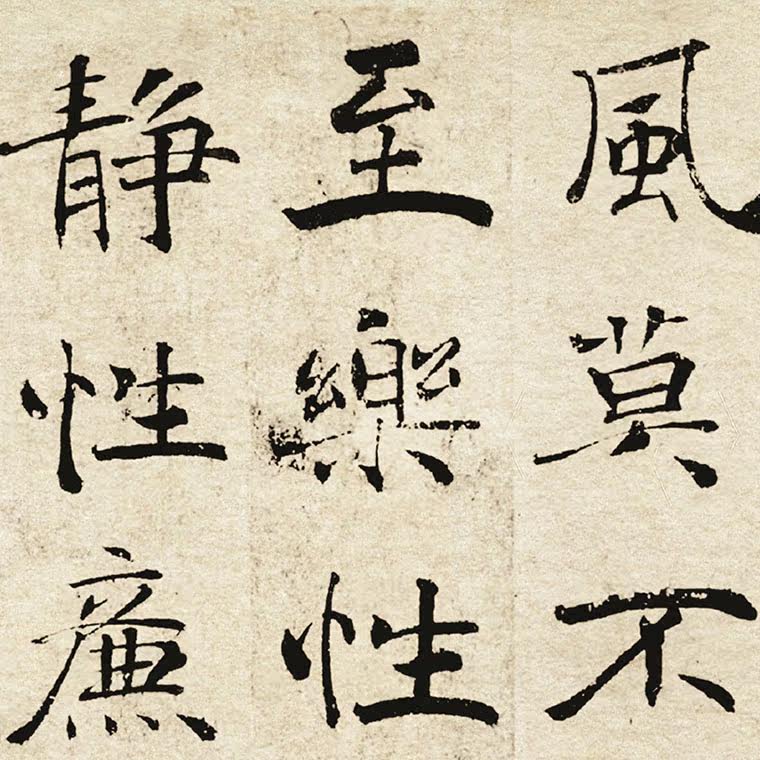 風莫不
至樂性
靜性廉